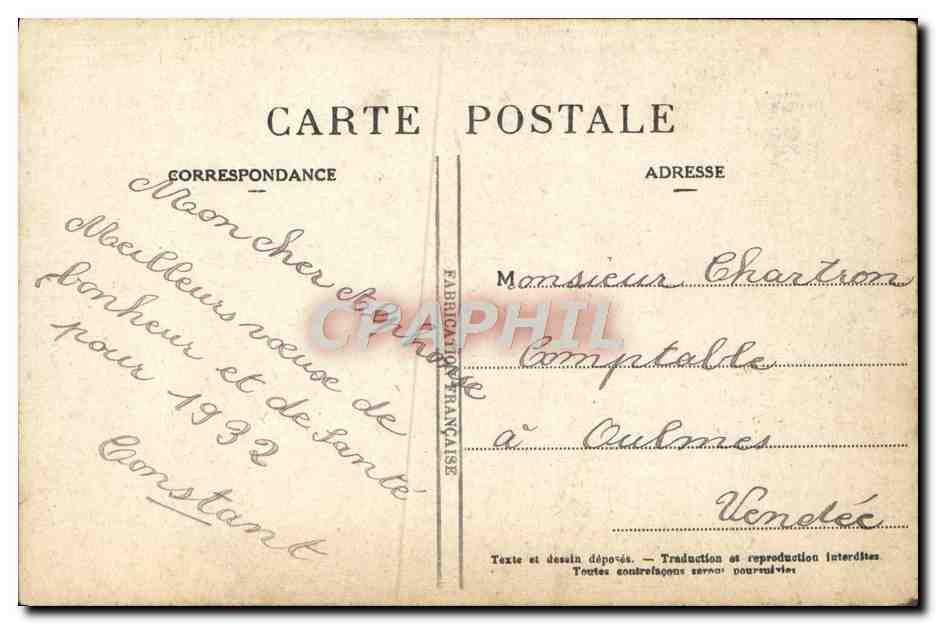 CARTE POSTALE
CORRESPONDANCE
Mon cher Alphonse
Meilleurs vœux de
bonheur et de santé
pour 1932
Constant
FABRICATION FRANÇAISE
ADRESSE
Monsieur Chartron
Comptable
à Oulmes
Vendée
Texte et dessin déposés. — Traduction et reproduction interdites.
Toutes contrefaçons seront poursuivies
CPAPHIL